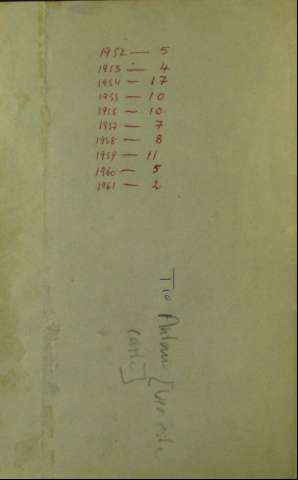 1952 — 5
1953 — 4
1954 — 17
1955 — 10
1956 — 10
1957 — 7
1958 — 8
1959 — 11
1960 — 5
1961 — 2
Tio Antonio